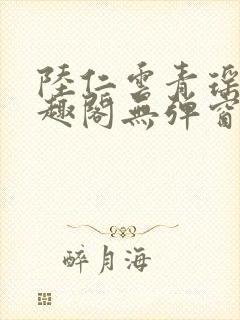 陸仁雲青瑶
趣閣無彈窗
醉月海